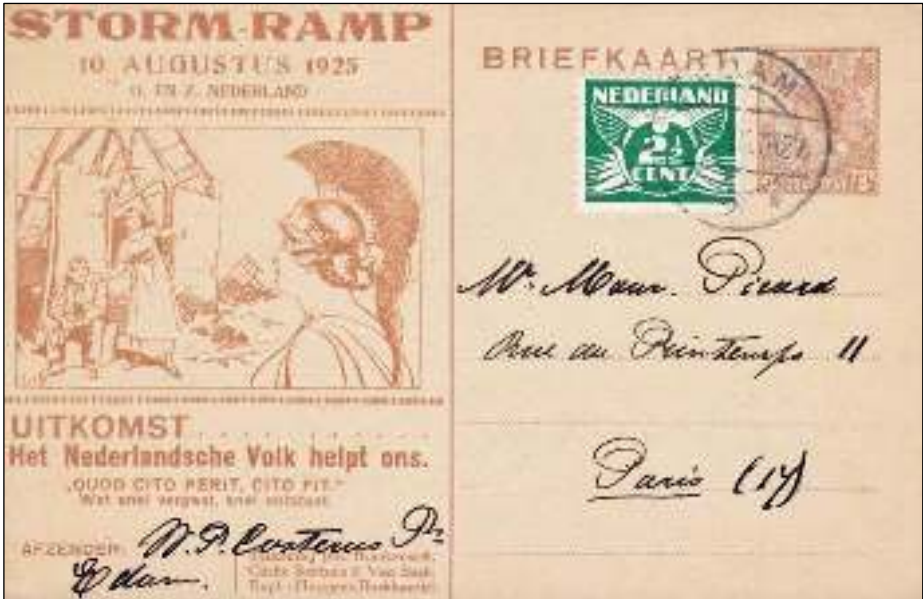 STORM-RAMP
10 AUGUSTUS 1925
O. EN Z. NEDERLAND
UITKOMST
Het Nederlandsche Volk helpt ons.
„QUOD CITO PERIT, CITO FIT."
Wat snel vergaat, snel ontstaat.
AFZENDER: W. P. Costerus Pz
Edam.
BRIEFKAART
NEDERLAND
2½
CENT
Mr. Maur. Picard
Rue du Printemps 11
Paris (17)